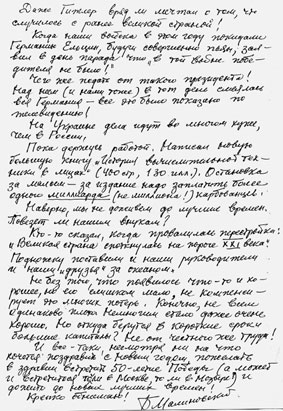 Даже Гитлер вряд ли мечтал о том, что
случилось с ранее великой страной!
Когда наши войска в этом году покидали
Германию Ельцин, будучи совершенно пьян, зая-
вил в день парада что "в той войне побе-
дителей не было!"
Чего же ждать от такого президента!
Над ним (и нами тоже) в тот день смеялась
вся Германия – все это было показано по
телевидению!
На Украине дела идут во многом хуже,
чем в России.
Пока держусь работой. Написал новую
большую книгу "История вычислительной тех-
ники в лицах" (400 стр, 130 илл.). Остановка
за малым – за издание надо заплатить более
одного миллиарда (не миллиона!) карбованцев.
Наверно, мы не доживем до лучших времен.
Повезет ли нашим внукам?
Кто-то сказал, когда провалилась перестройка:
"Великая страна споткнулась на пороге XXI века".
Подножку поставили и наши руководители
и наши "друзья" за океаном.
Не без того, что появилось что-то и хо-
рошее, но его слишком мало, не компенси-
рует это многих потерь. Конечно, не всем
одинаково плохо. Немногим стало даже очень
хорошо. Но откуда берутся в короткие сроки
большие капиталы? Не от честного же труда!
И все-таки, несмотря ни на что
хочется поздравить с Новым годом, пожелать
в здравии встретить 50-летие Победы (а может
и встретиться то ли в Москве, то ли в
дожить до новых лучших времен!
Крепко обнимаю!
Б Малиновский